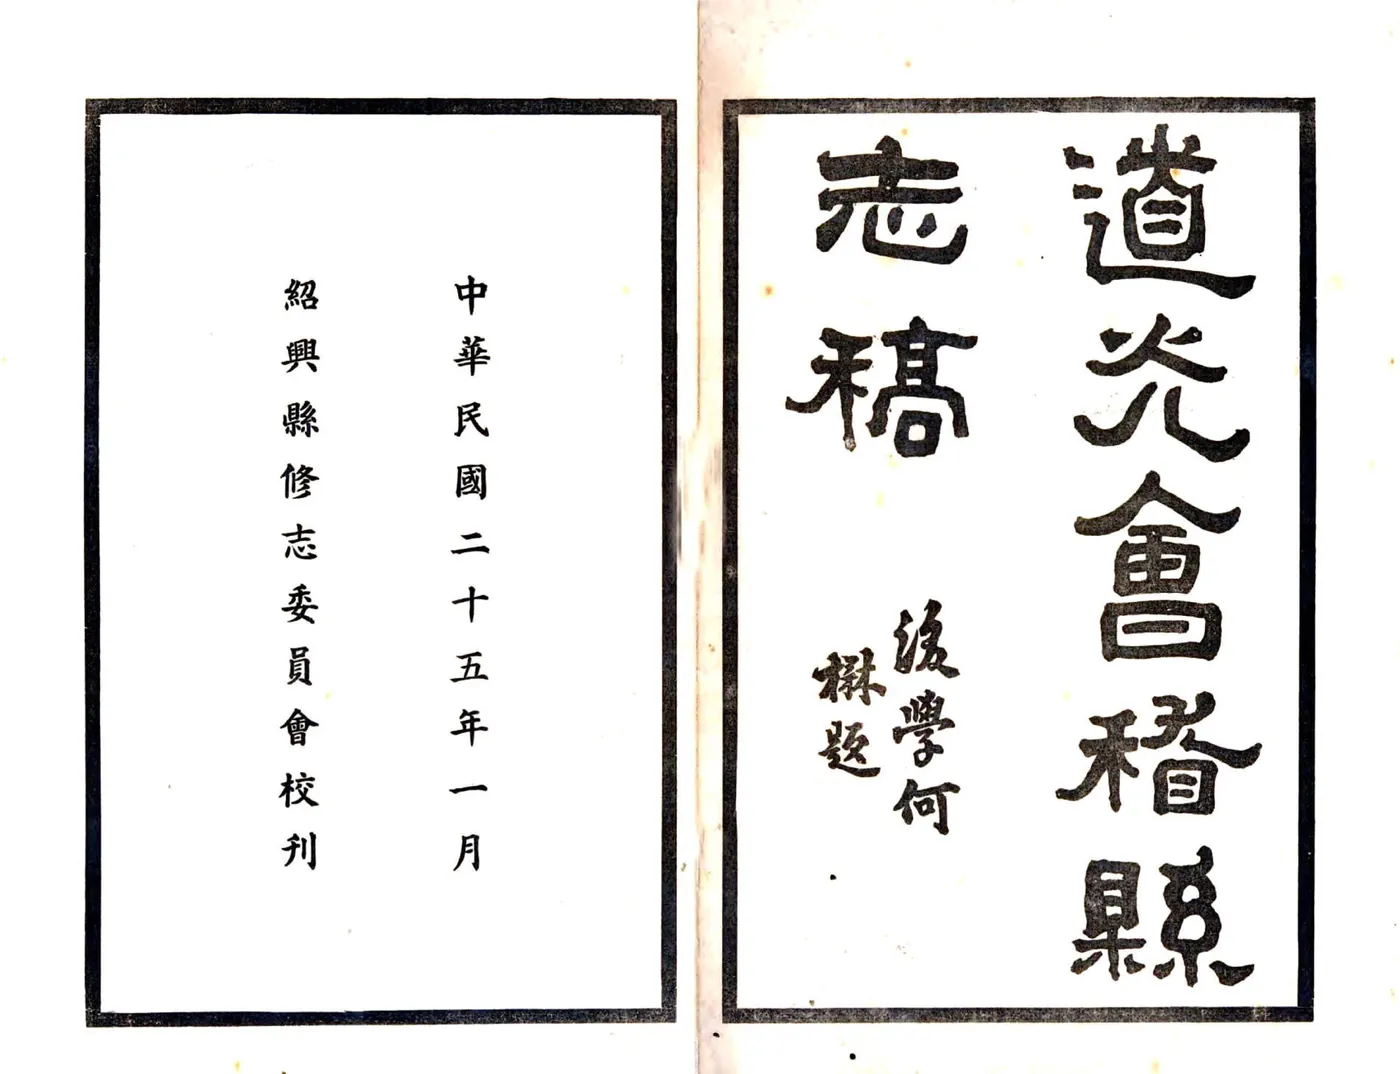 道光會稽縣
志稿
後學何
楙題
中華民國二十五年一月
紹興縣修志委員會校刊